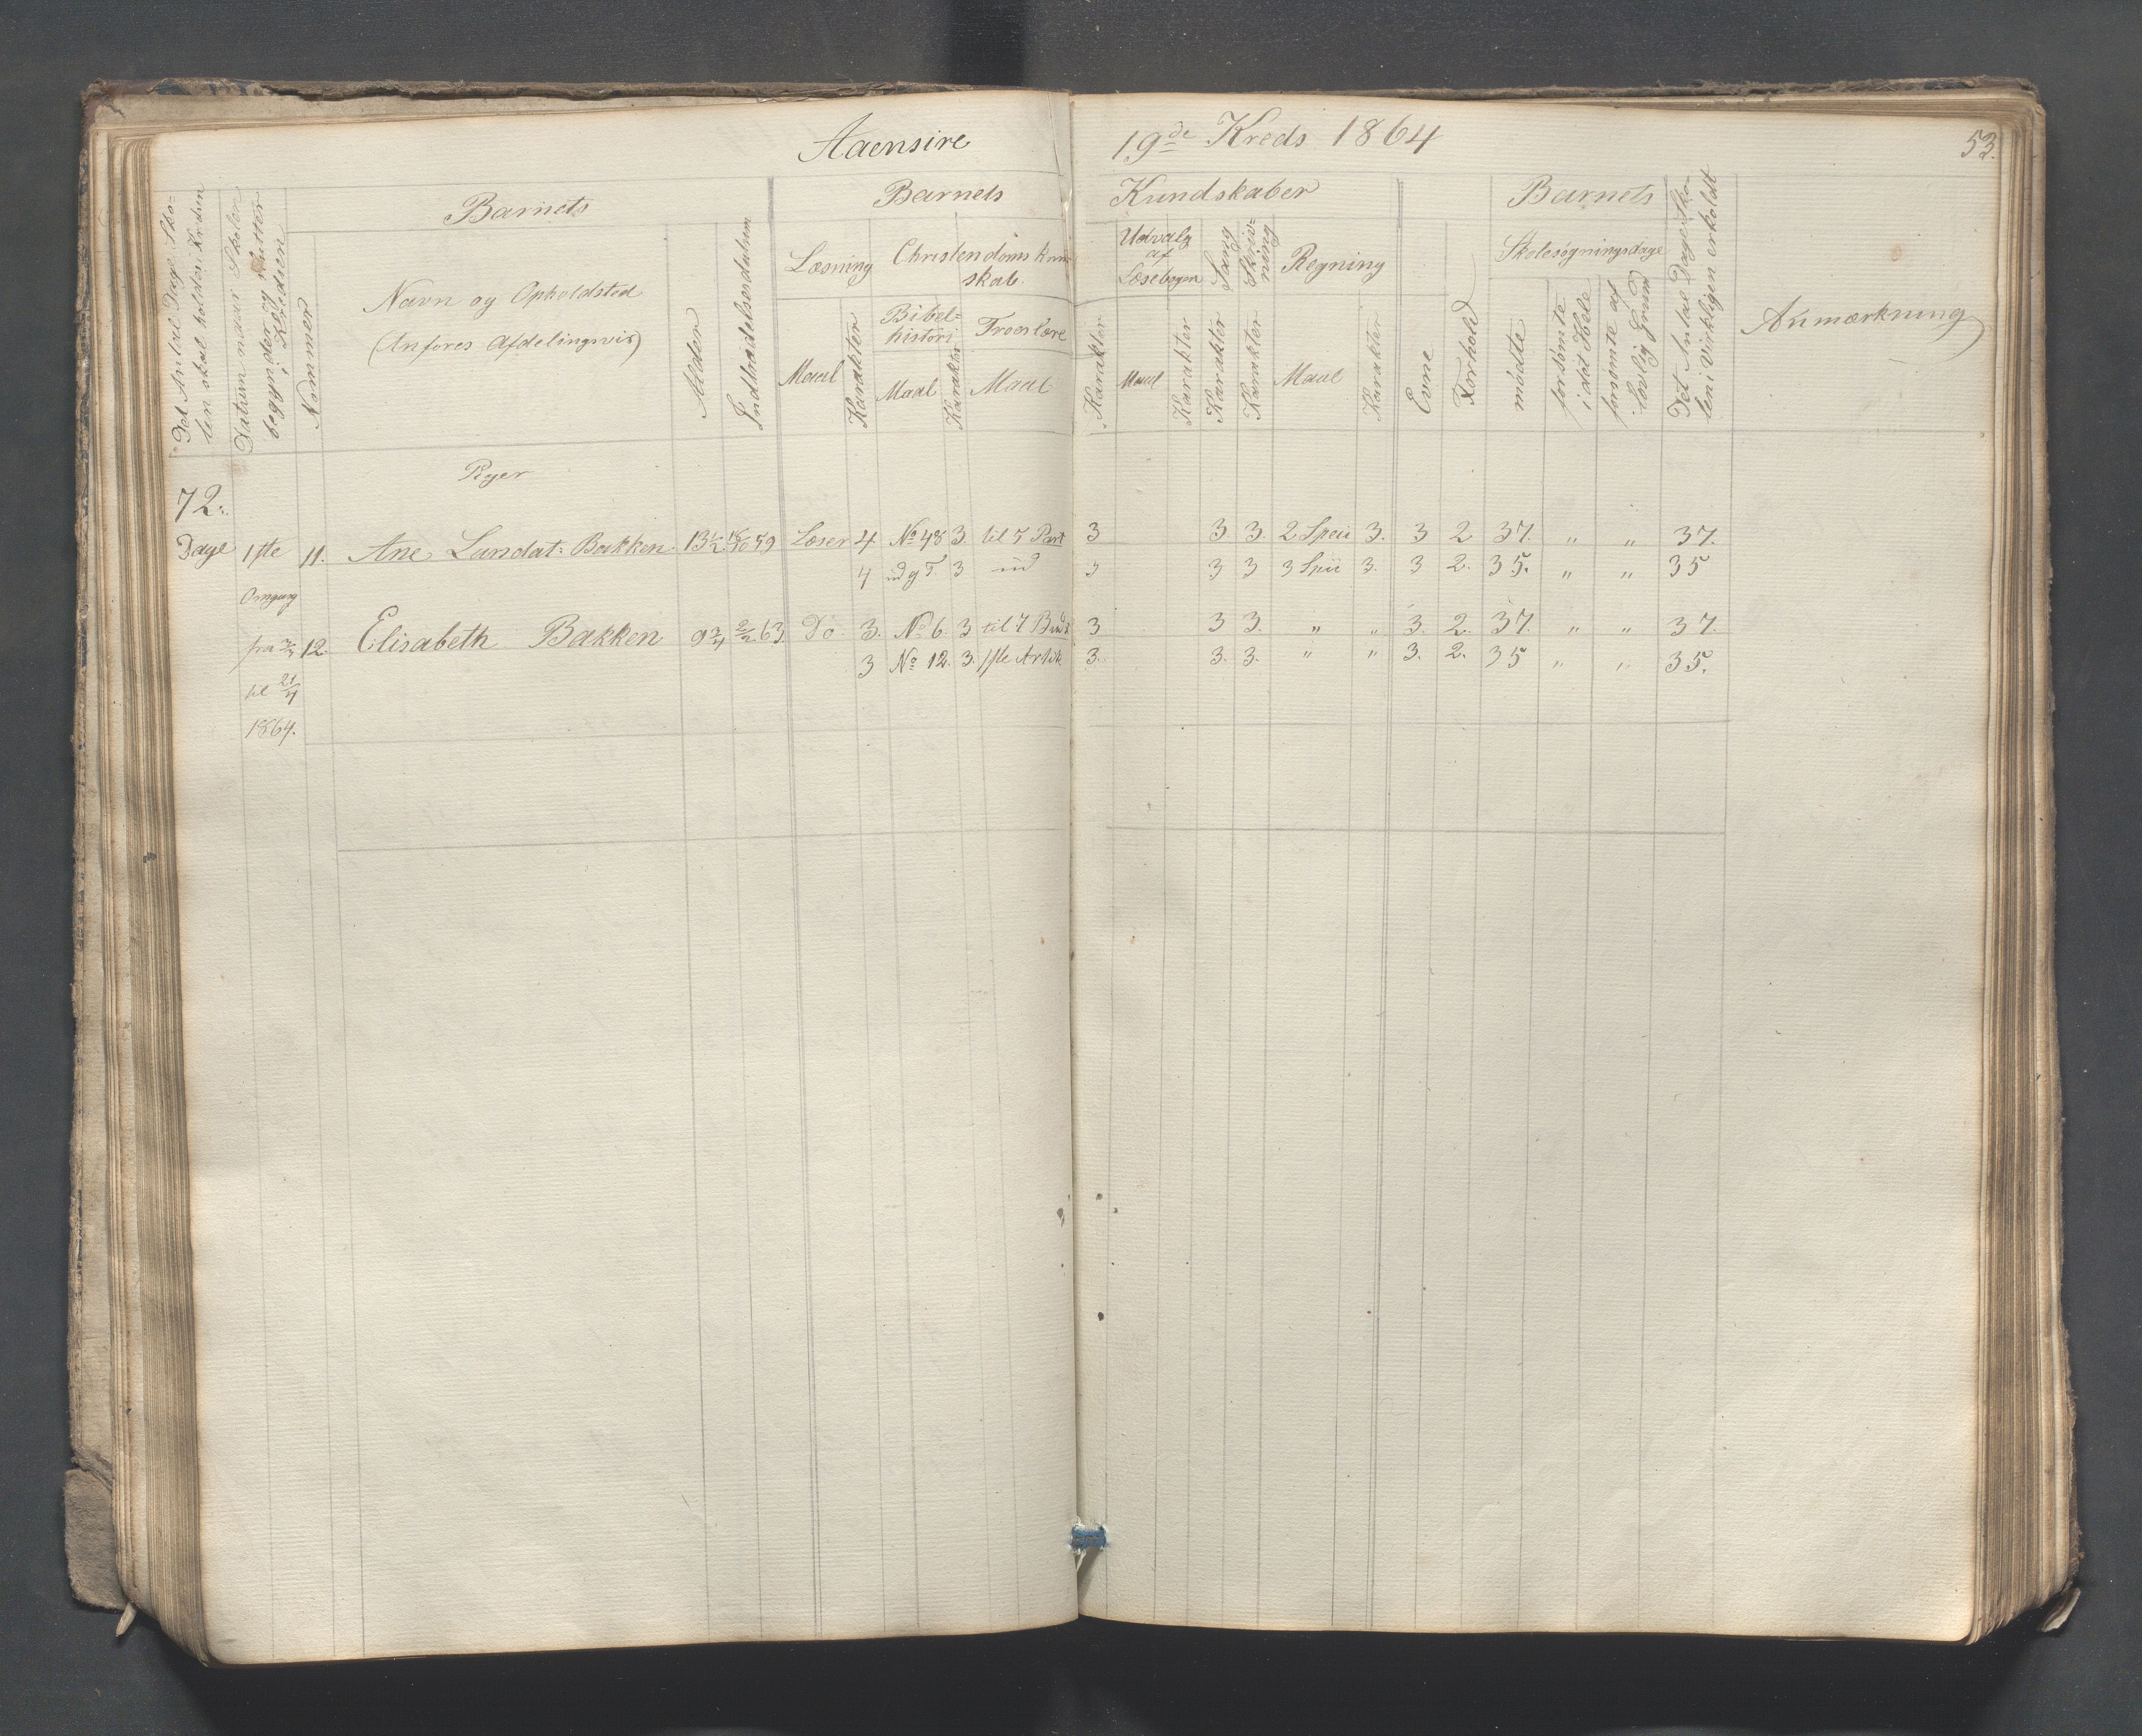 Aaensire
19de Kreds 1864
53.
Det Antal Dage Sko-
len skal holdes i Kredsen
Datum naar Skolen
begynder og slutter
i Kredsen
Nommer
Barnets
Navn og Opholdsted
(Anføres Afdelingsvis)
Alder
Indtrædelsesdatum
Barnets
Kundskaber
Læsning
Maal
Karakter
Christendoms kund
skab.
Bibel-
histori
Maal
Karakter
Troeslære
Maal
Karakter
Udvalg
af
Læsebogen
Maal
Karakter
Sang
Karakter
Skriv-
ning
Karakter
Regning
Maal
Karakter
Evne
Forhold
Barnets
Skolesøgningsdage
mødte
forsømte
i det Hele
forsømte af
lovlig Grund
Det Antal Dage Sko-
len i Virkligen erholdt
Anmærkning
Piger
72.
Dage 1ste 11. Ane Lundat: Bakken 13½ 59 Læser 4 No 48 3. til 5 Part 3 3. 3. 2 Speci 3. 3 2 37. " " 37.
4 3 ud 3 3 3 3 3. 3 2. 35. " " 35
Omgang
fra 12. Elisabeth Bakken 9¾ 63 Do. 3. No 6 3 til 7 Bud 3 3 3. " " 3. 2. 37. " " 37.
3 No 12. 3. 1ste Artik 3. 3. 3. " " 3. 2. 35 " " 35.
til 21/4
1864.